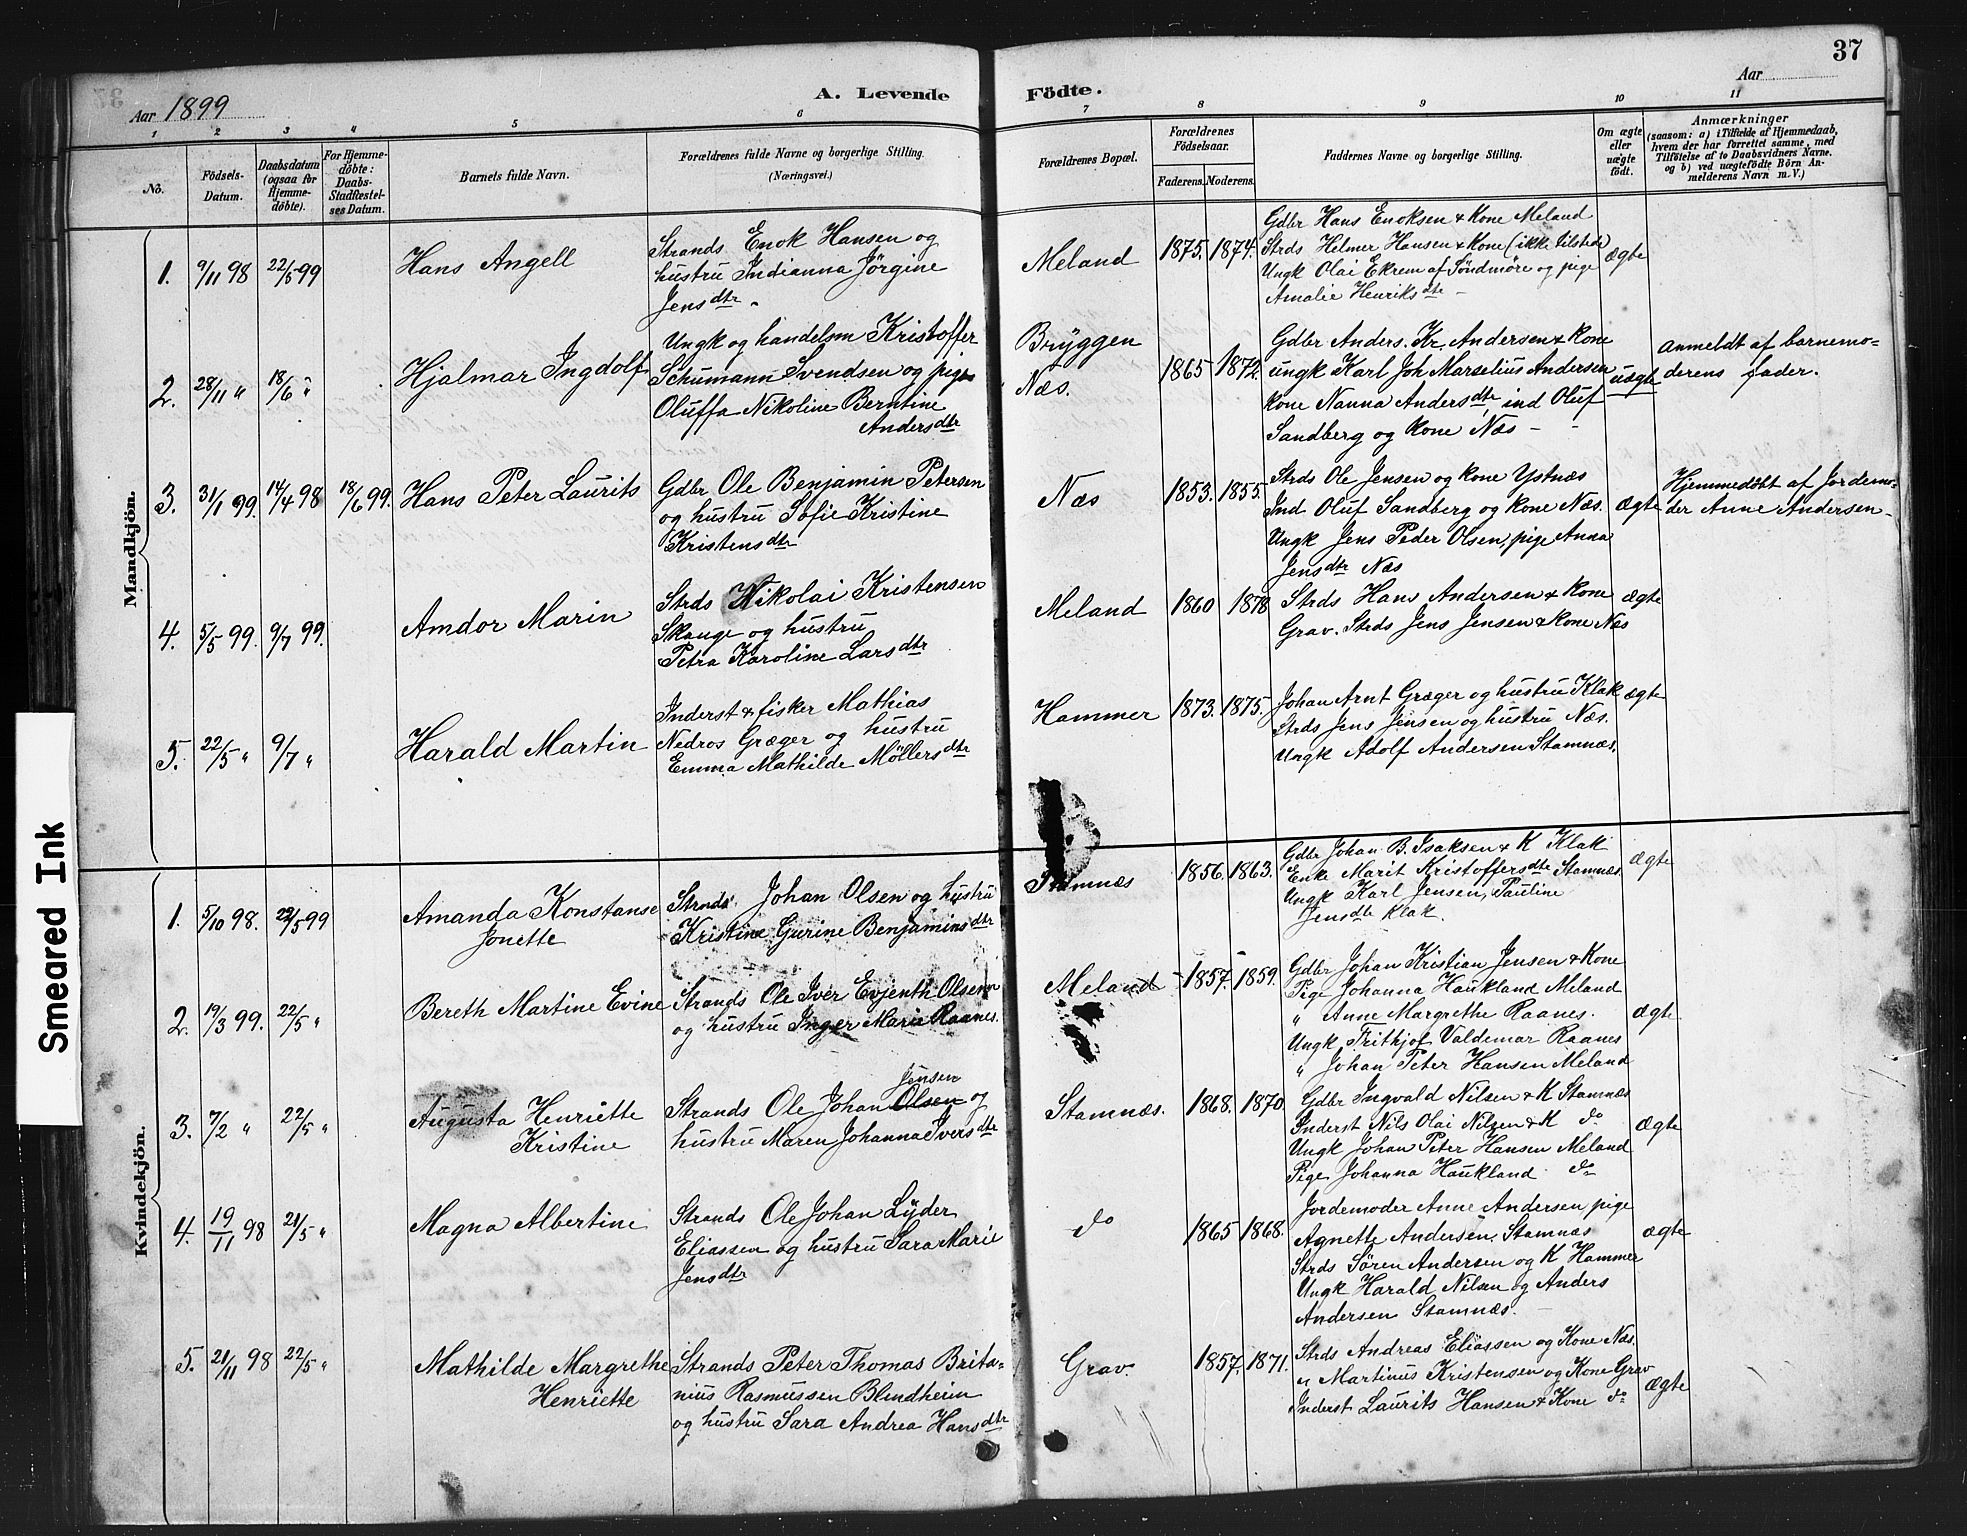 37
Aar 1899
A. Levende
Födte.
Aar
1 2 3 4 5 6 7 8 9 10 11
No.
Födsels-Datum.
Daabsdatum (ogsaa for Hjemme-döbte).
For Hjemme-döbte: Daabs-Stadfæstel-ses Datum.
Barnets fulde Navn.
Forældrenes fulde Navne og borgerlige Stilling.
(Næringsvei.)
Forældrenes Bopæl.
Forældrenes Födselsaar.
Faderens. Moderens.
Faddernes Navne og borgerlige Stilling.
Om ægte eller uægte födt.
Anmærkninger
(saasom: a) i Tilfælde af Hjemmedaab,
hvem der har forrettet samme, med
Tilföielse af to Daabsvidners Navne.
og b) ved uægtefödte Börn An-
melderens Navn m. V.)
Mandkjön.
1. 9/11 98 22/5 99 Hans Angell
Strands Enok Hansen og
hustru Indianna Jörgine
Jensdtr.
Meland 1875. 1874.
Gdbr Hans Enoksen & Kone Meland
Strds Helmer Hansen & Kone (ikke tilstede
Ungk Olai Ekrem af Söndmöre og pige
Amalie Henriksdtr
ægte
2. 28/11 " 18/6 " Hjalmar Ingdolf
Ungk og handelsm Kristoffer
Schumann Svendsen og pige
Oluffa Nikoline Berntine
Andersdtr
Bryggen
Næs.
1865 1872.
Gdbr Anders. Kr. Andersen & Kone
ungk Karl Joh Marselius Andersen
Kone Nanna Andersdtr, ind Oluf
Sandberg og Kone Næs -
uægte
anmeldt af barnemo-
derens fader.
3. 31/1 99. 14/4 98 18/6 99. Hans Peter Laurits
Gdbr Ole Benjamin Petersen
og hustru Sofie Kristine
Kristensdtr
Næs 1853. 1855.
Strds Ole Jensen og Kone Ystnæs
Ind Oluf Sandberg og Kone Næs.
Ungk Jens Peder Olsen, pige Anna
Jensdtr Næs
ægte
Hjemmedöbt af Jordemo-
der Anne Andersen -
4. 5/5 99. 9/7 99. Amdor Marin
Strds Nikolai Kristensen
Skauge og hustru
Petra Karoline Larsdtr
Meland 1860 1878
Strds Hans Andersen & Kone
Grav. Strds Jens Jensen & Kone Næs
ægte
5. 22/5 " 9/7 " Harald Martin
Inderst & fisker Mathias
Nedros Græger og hustru
Emma Mathilde Möllersdtr
Hammer 1873. 1875.
Johan Arnt Græger og hustru Klak
Strds Jens Jensen og hustru Næs.
Ungk Adolf Andersen Stamnæs.
ægte
Kvindekjön.
1. 5/10 98. 22/5 99 Amanda Konstanse
Jonette
Strands Johan Olsen og hustru
Kristine Gurine Benjaminsdtr
Stamnæs 1856. 1863.
Gdbr Johan B. Isaksen & K Klak
Enke Marit Kristoffersdtr Stamnæs
Ungk Karl Jensen, Pauline
Jensdtr Klak.
ægte
2. 19/3 99. 22/5 " Bereth Martine Evine
Strands Ole Iver Evjenth Olsen
og hustru Inger Marie Raanes.
Meland 1857. 1859.
Gdbr Johan Kristian Jensen & Kone
Pige Johanna Haukland Meland
" Anne Margrethe Raanes.
Ungk Frithjof Valdemar Raanes
" Johan Peter Hansen Meland
ægte
3. 7/2 " 22/5 " Augusta Henriette
Kristine
Jensen
Strands Ole Johan Olsen og
hustru Maren Johanna Iversdtr
Stamnæs. 1868. 1870
Gdbr Ingvald Nilsen & K Stamnæs
Inderst Nils Olai Nilsen & K do
Ungk Johan Peter Hansen Meland
Pige Johanna Haukland do
ægte
4. 19/11 98 21/5 " Magna Albertine
Strands Ole Johan Lyder
Eliassen og hustru Sara Marie
Jensdtr
do 1865 1868.
Jordemoder Anne Andersen, pige
Agnette Andersen. Stamnæs
Strds Sören Andersen og K Hammer
Ungk Harald Nilsen og Anders
Andersen Stamnæs.
ægte
5. 21/11 98 22/5 " Mathilde Margrethe
Henriette
Strands Peter Thomas Brita-
nius Rasmussen Blindheim
og hustru Sara Andrea Hansdtr
Grav. 1857. 1871.
Strds Andreas Eliassen og Kone Næs.
" Martinus Kristensen og Kone Grav
Inderst Laurits Hansen & Kone do
ægte
Smeared Ink